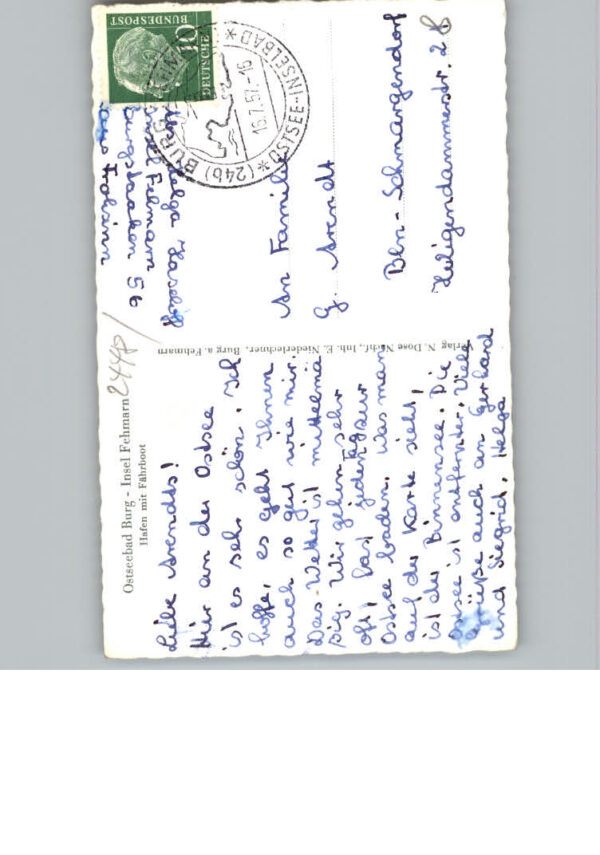 Ostseebad Burg - Insel Fehmarn
Hafen mit Fährboot
2440/
Liebe Arendts!
Hier an der Ostsee
ist es sehr schön. Ich
hoffe, es geht Ihnen
auch so gut wie mir.
Das Wetter ist mittelmä
sig. Wir gehen sehr
oft, fast jeden Tag zur
Ostsee baden. Was man
auf der Karte sieht,
ist der Binnensee. Die
Ostsee ist entfernter. Viele
Grüße auch an Gerhard
und Siegrid. Helga
Verlag N. Dose Nachf., Inh. E. Niederlechner, Burg a. Fehmarn
Helga
Insel Fehmarn
Burgstaaken 56
DEUTSCHE
BUNDESPOST
10
(24b) BURG
* OSTSEE-INSELBAD *
16.7.57.-16
An Familie
G. Arendt
Bln-Schmargendorf
Heiligendammerstr. 28